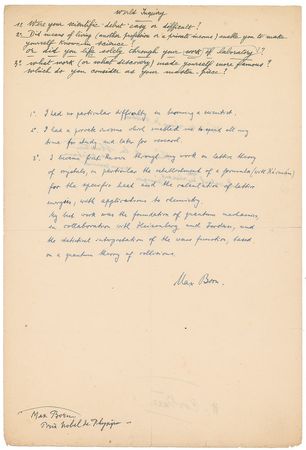 World Inquiry
1º Were your scientific debut easy or difficult?
2º Did means of living (another profession or a private income) enable you to make
yourself known in science
or did you life solely through your work of laboratory)?
3º what work (or what discovery) made yourself more famous?
which do you consider as your master piece?
1º. I had no particular difficulty in becoming a scientist.
2º. I had a private income which enabled me to spend all my
time for study and later for research.
3º. I became first known through my work on lattice theory
of crystals, in particular the establishment of a formula (with Kármán)
for the specific heat and the calculation of lattice
energies, with applications to chemistry.
My best work was the foundation of quantum mechanics,
in collaboration with Heisenberg and Jordan, and
the statistical interpretation of the wave function, based
on a quantum theory of collisions.
Max Born.
Max Born
Prix Nobel de Physique